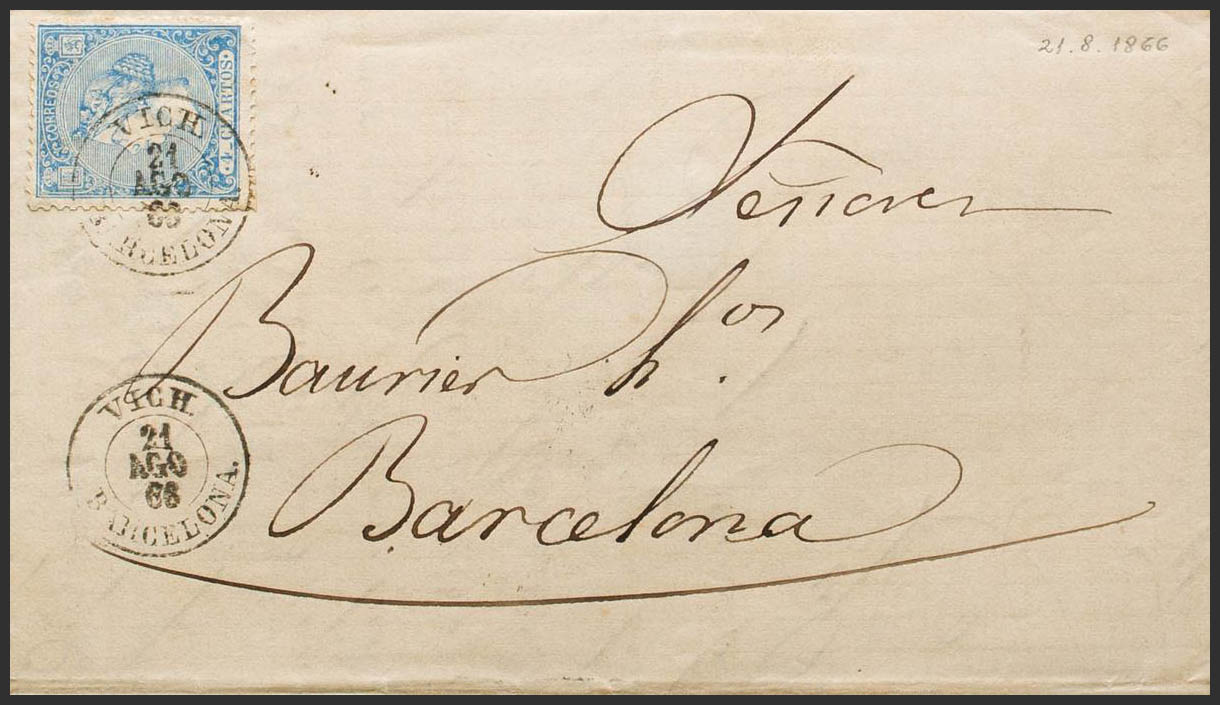 21.8.1866
CORREOS
4 CUARTOS
VICH
21
AGO
66
BARCELONA
Señores
Baurier h.os
Barcelona
VICH.
21
AGO
66
BARCELONA.